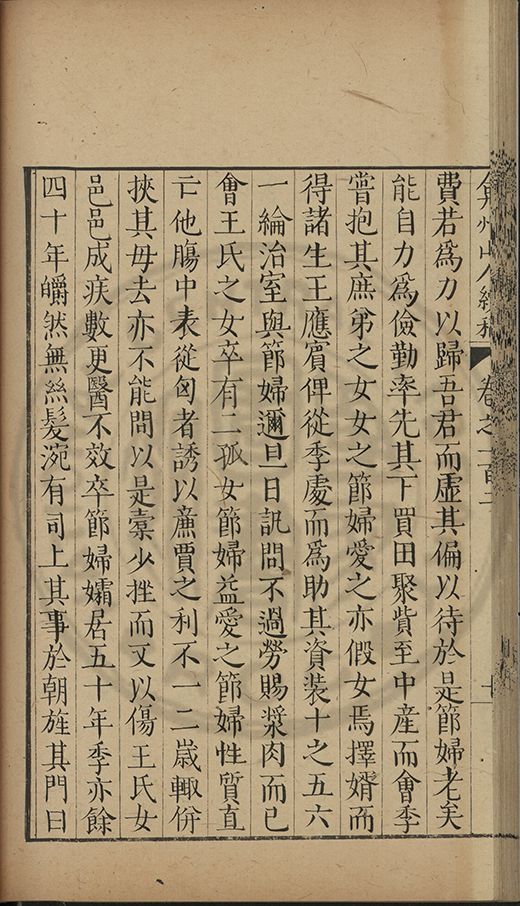 弇州山人續稿 卷之一百二 十
費若爲力以歸吾君而虛其偏以待於是節婦老矣
能自力爲儉勤率先其下買田聚貲至中產而會季
嘗抱其庶弟之女女之節婦愛之亦假女焉擇婿而
得諸生王應賓俾從季處而爲助其資装十之五六
一綸治室與節婦邇旦日訊問不過勞賜漿肉而已
會王氏之女卒有二孤女節婦益愛之節婦性質直
亡他膓中表從匄者誘以廉賈之利不一二歲輙併
挾其母去亦不能問以是槖少挫而又以傷王氏女
邑邑成疾數更醫不效卒節婦孀居五十年季亦餘
四十年皭然無絲髮涴有司上其事於朝旌其門曰